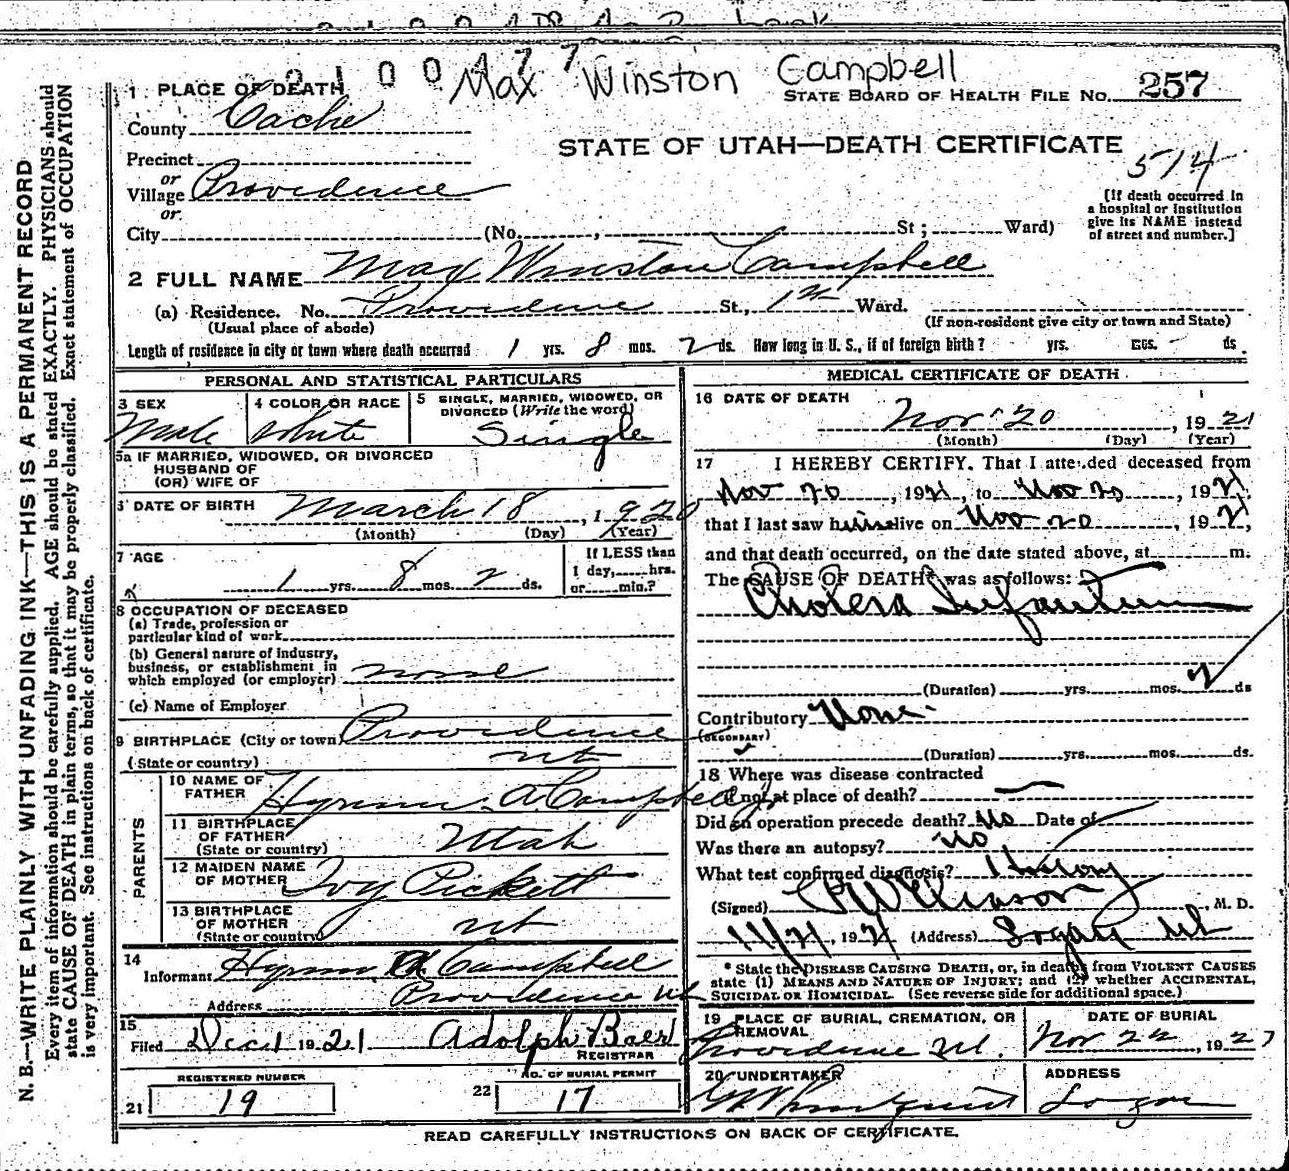 2100477
Max Winston Campbell
1 PLACE OF DEATH
STATE BOARD OF HEALTH FILE NO. 257
County Cache
STATE OF UTAH—DEATH CERTIFICATE
514
Precinct
or
Village Providence
or
[If death occurred in a hospital or institution give its NAME instead of street and number.]
City (No. , St ; Ward)
2 FULL NAME Max Winston Campbell
(a) Residence. No. Providence St., 1st Ward.
(Usual place of abode) (If non-resident give city or town and State)
Length of residence in city or town where death occurred 1 yrs. 8 mos. 2 ds. How long in U. S., if of foreign birth? yrs. mos. ds.
PERSONAL AND STATISTICAL PARTICULARS
3 SEX Male
4 COLOR OR RACE White
5 SINGLE, MARRIED, WIDOWED, OR DIVORCED (Write the word) Single
5a IF MARRIED, WIDOWED, OR DIVORCED
HUSBAND OF
(OR) WIFE OF
6 DATE OF BIRTH March 18, 1920
(Month) (Day) (Year)
7 AGE
1 yrs. 8 mos. 2 ds.
If LESS than
1 day, hrs.
or min.?
8 OCCUPATION OF DECEASED
(a) Trade, profession or
particular kind of work
(b) General nature of industry,
business, or establishment in
which employed (or employer) none
(c) Name of Employer
9 BIRTHPLACE (City or town) Providence
(State or country) Ut
PARENTS
10 NAME OF
FATHER Hyrum A Campbell Jr
11 BIRTHPLACE
OF FATHER
(State or country) Utah
12 MAIDEN NAME
OF MOTHER Ivy Pickett
13 BIRTHPLACE
OF MOTHER
(State or country) Ut
14
Informant Hyrum A Campbell
Address Providence Ut
15
Filed Dec 1 1921 Adolph Baer
REGISTRAR
REGISTERED NUMBER
21 19
NO. OF BURIAL PERMIT
22 17
MEDICAL CERTIFICATE OF DEATH
16 DATE OF DEATH
Nov 20, 1921
(Month) (Day) (Year)
17 I HEREBY CERTIFY, That I attended deceased from
Nov 20, 1921, to Nov 20, 1921,
that I last saw him alive on Nov 20, 1921,
and that death occurred, on the date stated above, at m.
The CAUSE OF DEATH* was as follows:
Cholera Infantum
(Duration) yrs. mos. 2 ds
Contributory None.
(SECONDARY)
(Duration) yrs. mos. ds.
18 Where was disease contracted
if not at place of death?
Did an operation precede death? No Date of
Was there an autopsy? No
What test confirmed diagnosis? History
(Signed) , M. D.
11/21, 1921 (Address) Logan Ut
* State the DISEASE CAUSING DEATH, or, in deaths from VIOLENT CAUSES
state (1) MEANS AND NATURE OF INJURY; and (2) whether ACCIDENTAL,
SUICIDAL OR HOMICIDAL. (See reverse side for additional space.)
19 PLACE OF BURIAL, CREMATION, OR
REMOVAL
Providence Ut.
DATE OF BURIAL
Nov 22, 192
20 UNDERTAKER
ADDRESS
Logan
READ CAREFULLY INSTRUCTIONS ON BACK OF CERTIFICATE.
N. B.—WRITE PLAINLY WITH UNFADING INK—THIS IS A PERMANENT RECORD
Every item of information should be carefully supplied. AGE should be stated EXACTLY. PHYSICIANS should
state CAUSE OF DEATH in plain terms, so that it may be properly classified. Exact statement of OCCUPATION
is very important. See instructions on back of certificate.